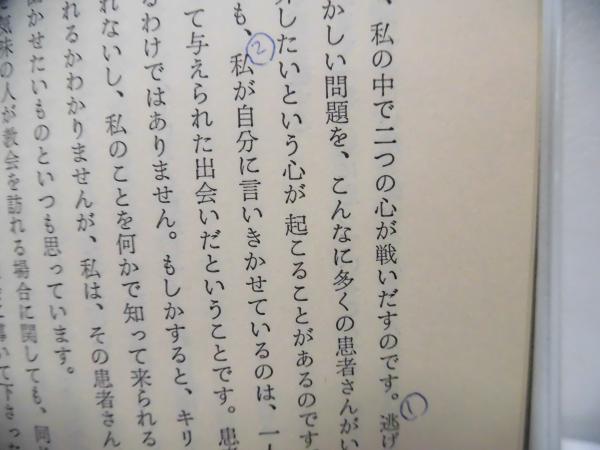 、私の中で二つの心が戦いだすのです。①逃げ
かしい問題を、こんなに多くの患者さんがい
したいという心が起こることがあるのです
も、②私が自分に言いきかせているのは、一
て与えられた出会いだということです。患
るわけではありません。もしかすると、キリ
れないし、私のことを何かで知って来られる
れるかわかりませんが、私は、その患者さん
かせたいものといつも思っています。
味の人が教会を訪れる場合に関しても、同
導いて下さった